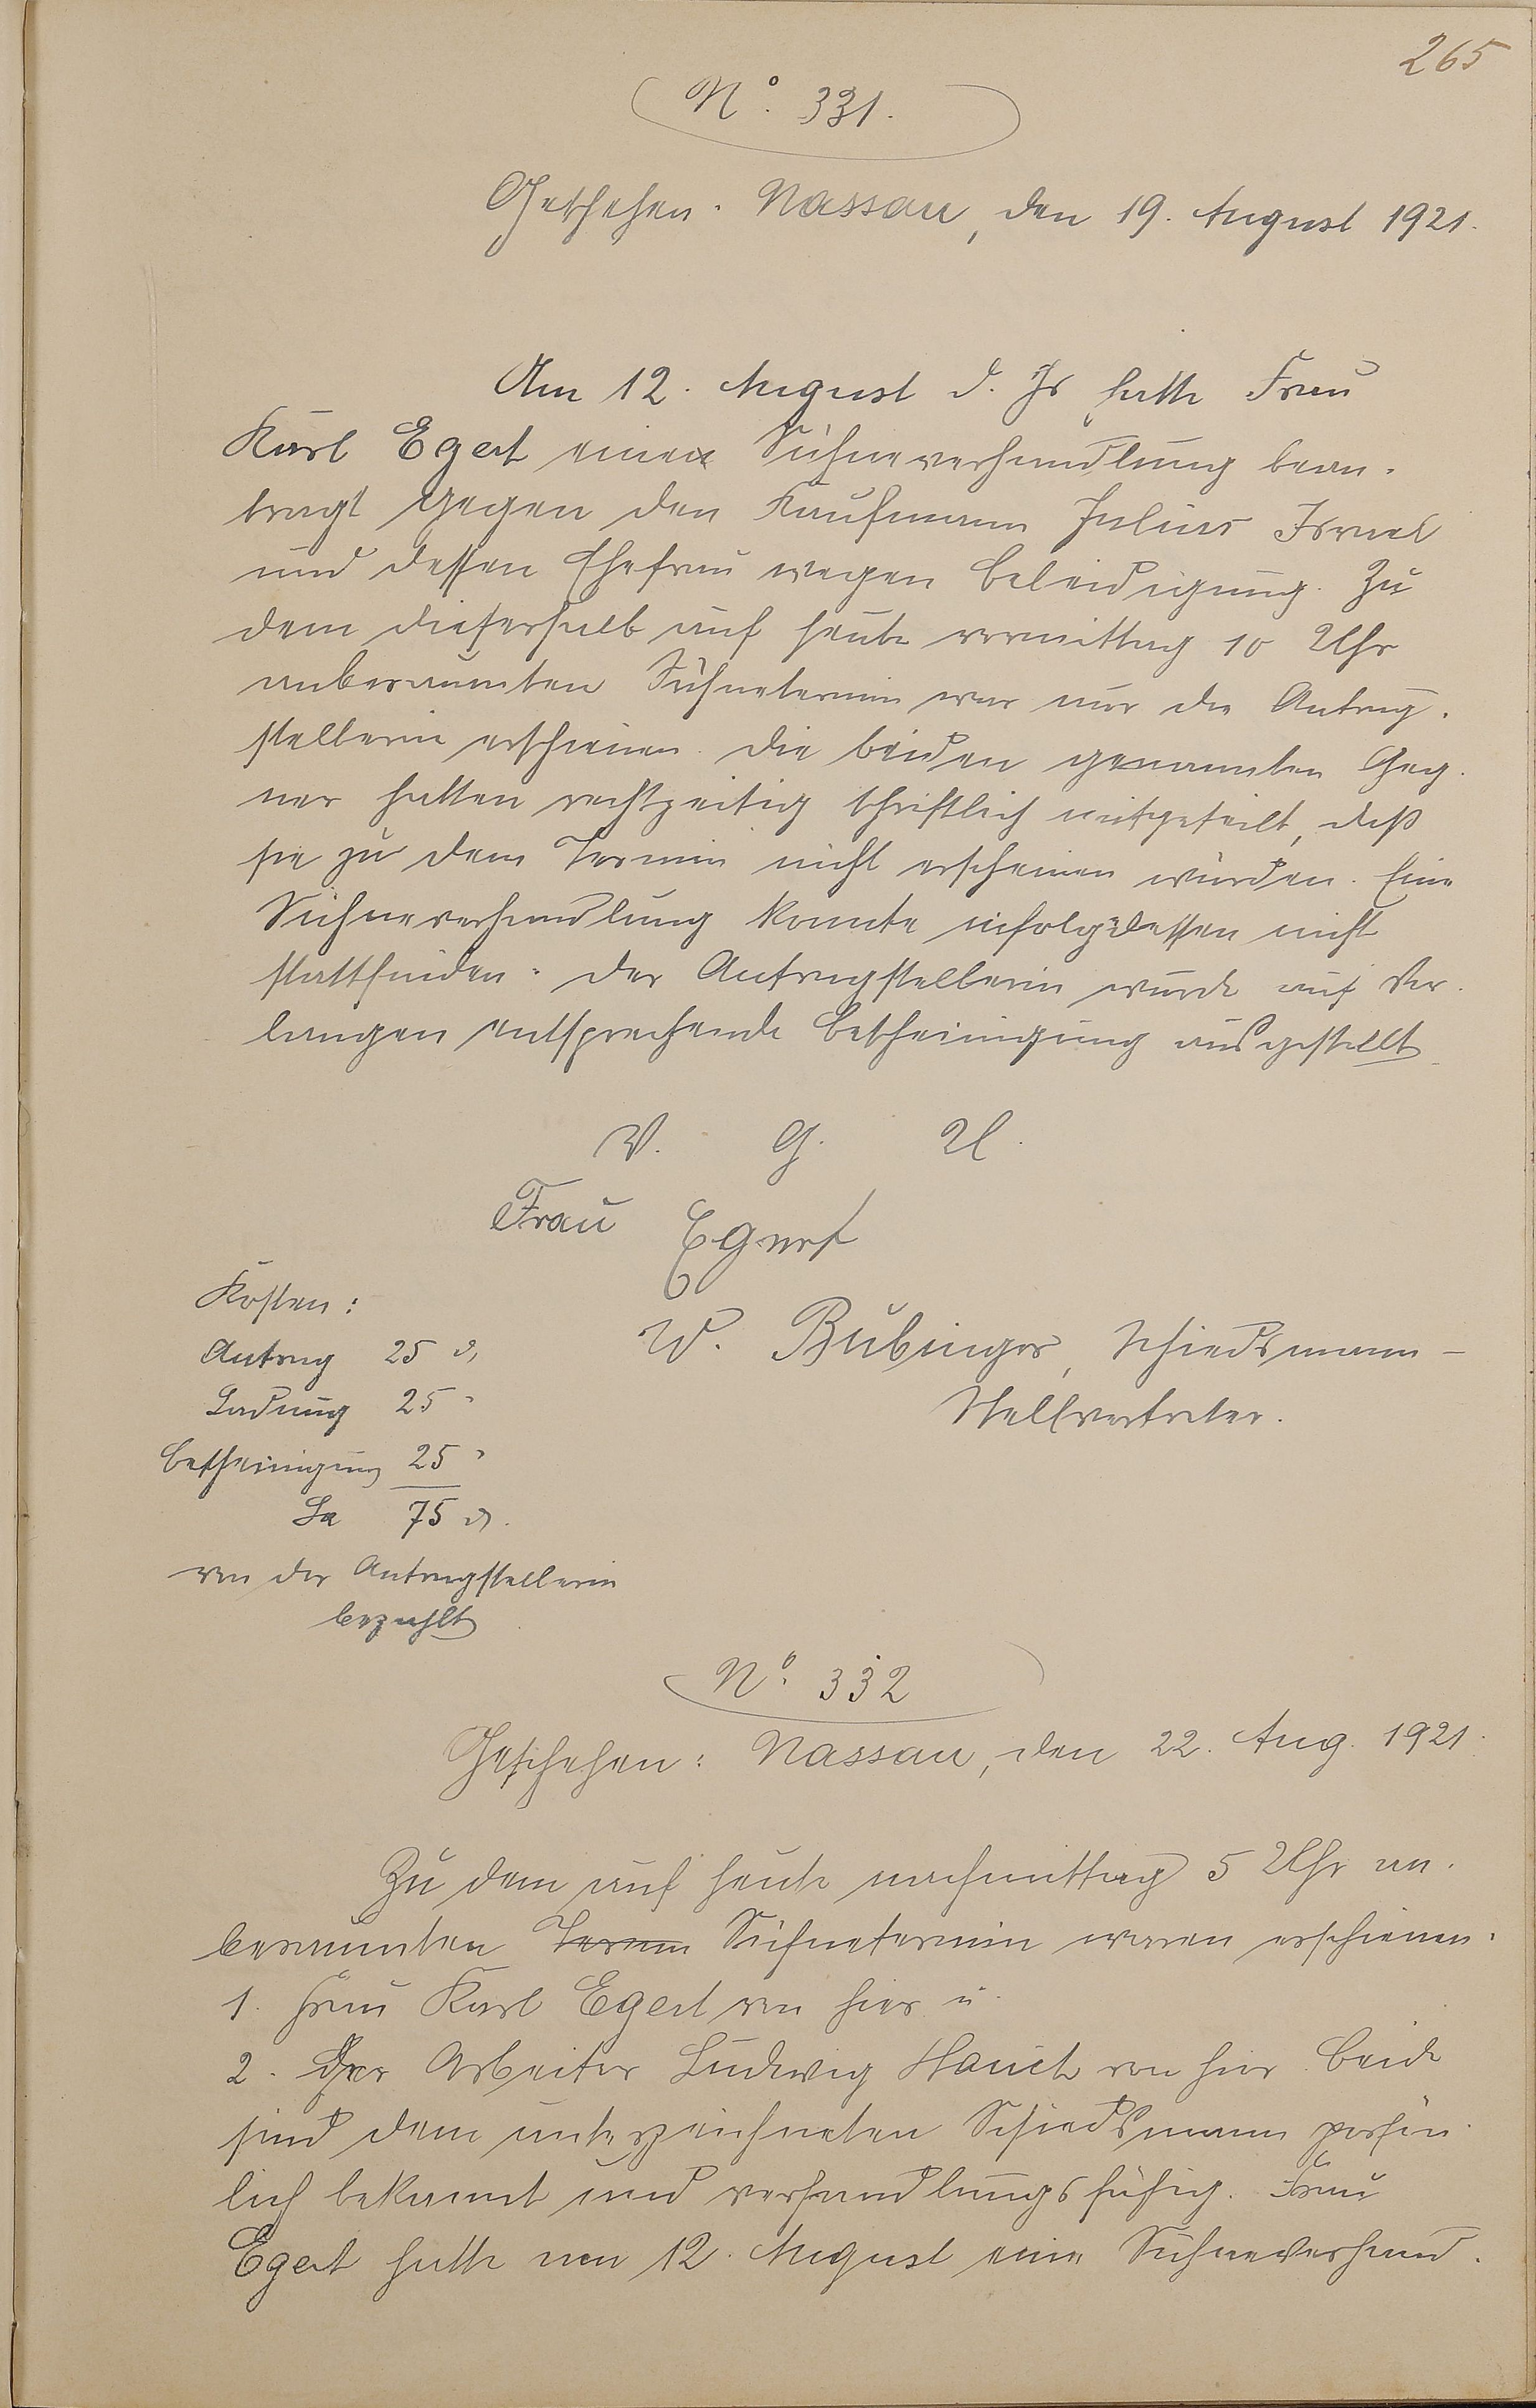 265
No. 331.
Geschehen. Nassau, den 19. August 1921.
Am 12. August d. Js hatte Frau
Karl Egert eine Sühneverhandlung bean-
tragt gegen den Kaufmann Julius Israel
und dessen Ehefrau wegen Beleidigung. Zu
dem dieserhalb auf heute vormittag 10 Uhr
anberaumten Sühnetermin war nur die Antrag-
stellerin erschienen. Die beiden genannten Geg-
ner hatten rechtzeitig schriftlich mitgeteilt, daß
sie zu dem Termin nicht erscheinen würden. Eine
Sühneverhandlung konnte infolgedessen nicht
stattfinden. Der Antragstellerin wurde auf Ver-
langen entsprechende Bescheinigung ausgestellt
V. G. U.
Frau Egert
W. Bubinger, Schiedsmann-
Stellvertreter.
Kosten:
Antrag 25 ₰
Ladung 25 "
Bescheinigung 25 "
Sa 75 ₰.
von der Antragstellerin
bezahlt
No. 332
Geschehen: Nassau, den 22. Aug. 1921.
Zu dem auf heute nachmittag 5 Uhr an-
beraumten Termin Sühnetermin waren erschienen.
1. Frau Karl Egert von hier u.
2. Der Arbeiter Ludwig von hier. Beide
sind dem unterzeichneten Schiedsmann persön-
lich bekannt und verhandlungsfähig. Frau
Egert hatte am 12. August eine Sühneverhand-